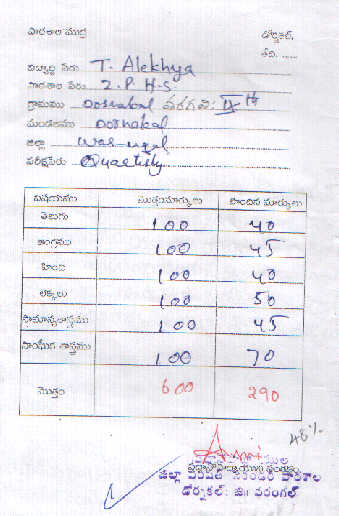 పాఠశాల ముద్ర డోర్నకల్,
తేది. ......
విద్యార్థి పేరు T. Alekhya
పాఠశాల పేరు Z.P.H.S
గ్రామము Dornakal తరగతి: IX th
మండలము Dornakal
జిల్లా Warangal
పరీక్షపేరు Quarterly
విషయము మొత్తంమార్కులు పొందిన మార్కులు
తెలుగు 100 40
ఆంగ్లము 100 45
హింది 100 40
లెక్కలు 100 50
సామాన్యశాస్త్రము 100 45
సాంఘీక శాస్త్రము 100 70
మొత్తం 600 290
48%
జిల్లా పరిషత్ సెకండరి పాఠశాల
డోర్నకల్, జిII వరంగల్